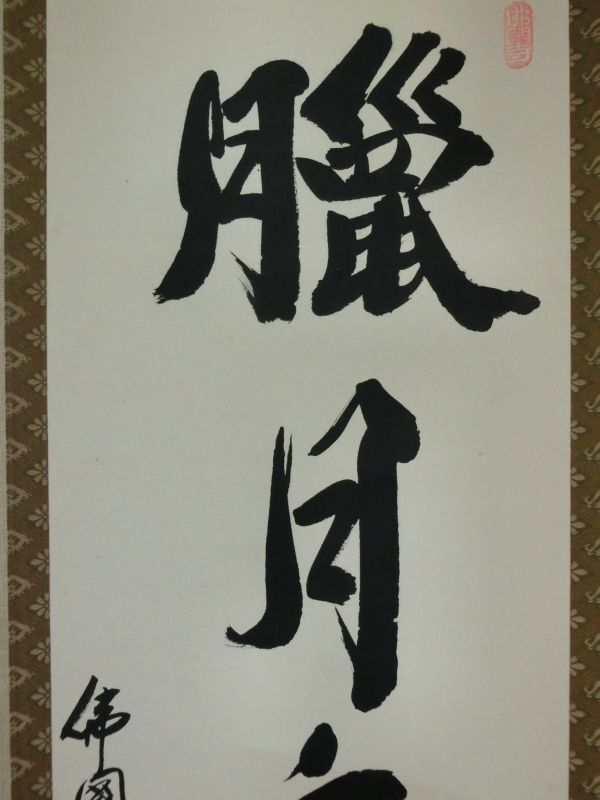 臘月
佛國